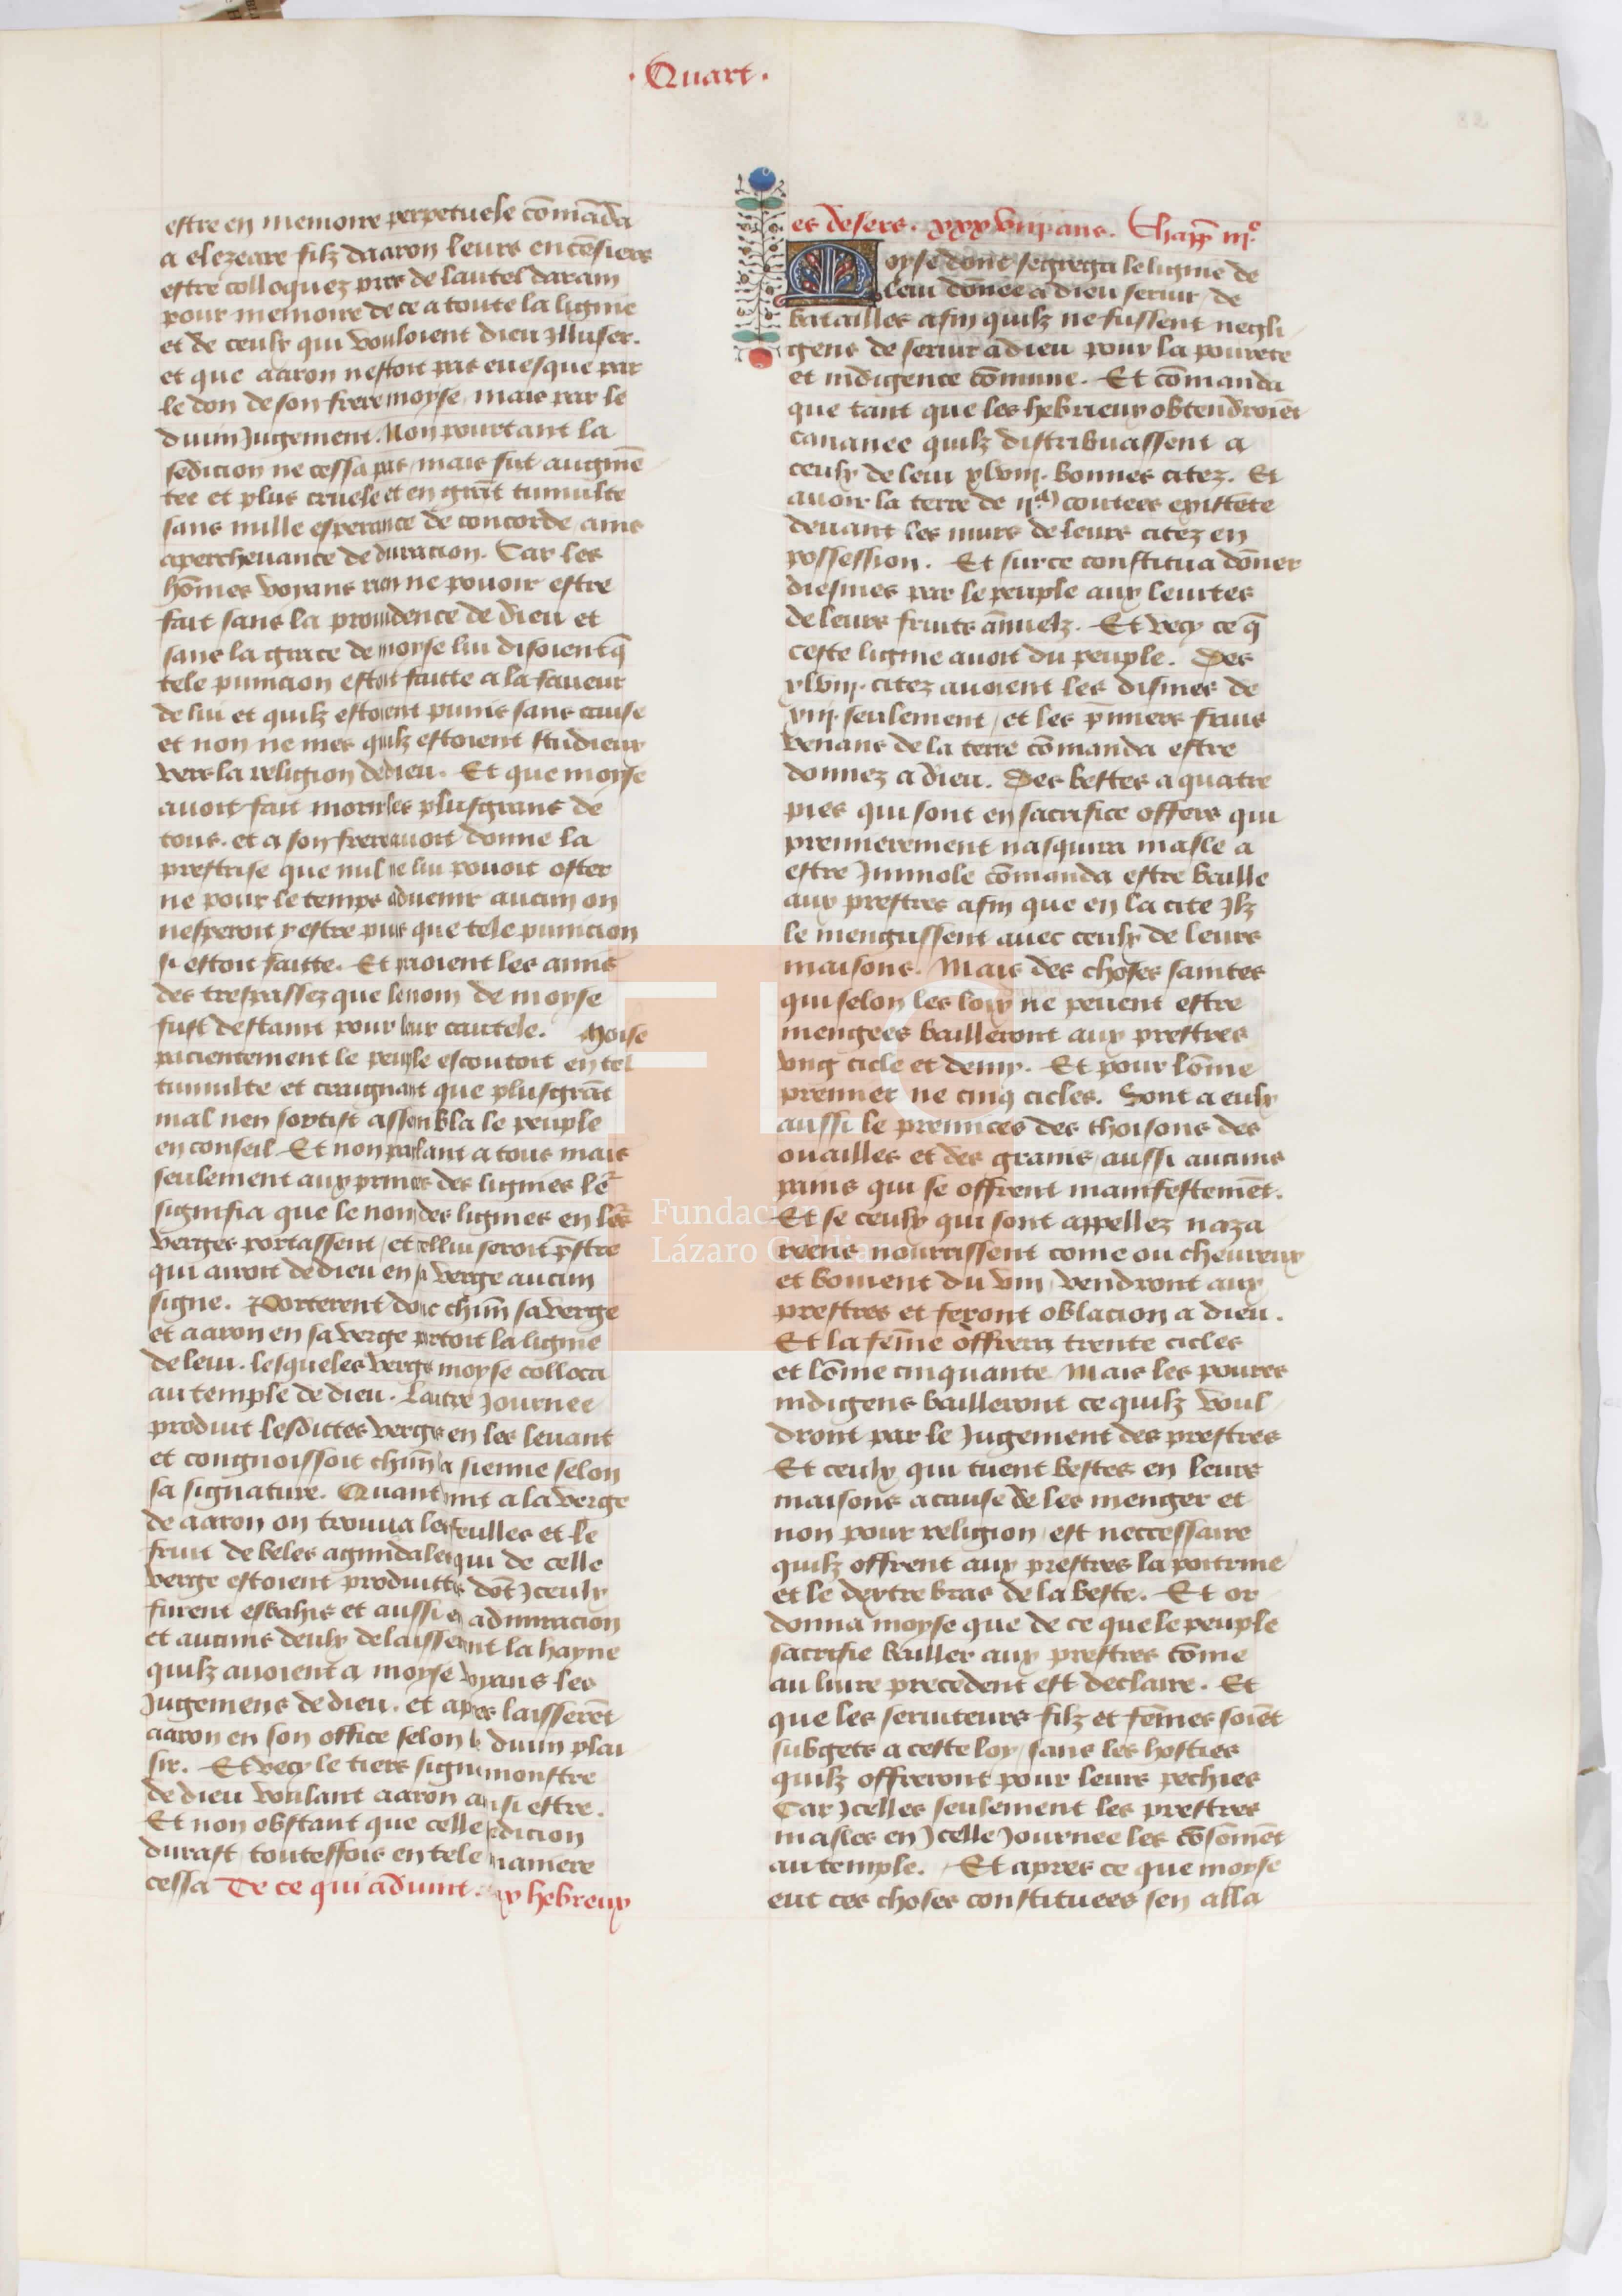 · Quart ·
82
estre en memoire perpetuele cōmāda
a elezeare filz daaron leurs encēsiers
estre colloquez pres de lautel daram
pour memoire de ce a toute la lignie
et de ceulx qui vouloient dieu Illuser.
et que aaron nestoit pas euesque par
le don de son frere moyse / mais par le
diuin Jugement. Non pourtant la
sedicion ne cessa pas / mais fut augmē
tee et plus cruele et en grāt tumulte
sans nulle esperance de concorde ains
aperchevance de duracion. Car les
hōmes voyans rien ne pouoir estre
fait sans la prouidence de dieu et
sans la grace de moyse lui disoient q̄
tele punicion estoit faitte a la faueur
de lui et quilz estoient punis sans cause
et non ne mes quilz estoient studieux
vers la religion de dieu. Et que moyse
auoit fait morir les plusgrans de
tous. et a son frere auoit donne la
prestrise que nul ne lui pouoit oster
ne pour le temps aduenir aucun on
nesperoit y estre puis que tele punicion
si estoit faitte. Et prioient les amis
des trespassez que le nom de moyse
fust destaint pour leur cautele. Moise
pacientement le peuple escoutoit en tel
tumulte et craignant que plusgrāt
mal nen sortist assenbla le peuple
en conseil Et non parlant a tous mais
seulement aux princes des lignies lr̄
signifia que le nom des lignies en lrs̄
verges portassent / et cellui seroit p̄stre
qui auroit de dieu en sa verge aucun
signe. Porterent donc chūn sa verge
et aaron en sa verge portoit la lignie
de leui. lesqueles verges moyse colloca
au temple de dieu. Lautre Journee
produit lesdittes verges en les leuant
et congnoissoit chūn la sienne selon
sa signature. Quant vint a la verge
de aaron on trouua les feulles et le
fruit de beles agmidales qui de celle
verge estoient produittes dōt Iceulx
furent esbahis et aussi en admiracion
et aucuns deulx delaisserent la hayne
quilz auoient a moyse voyans les
Jugemens de dieu. et apres laisserēt
aaron en son office selon le diuin plai
sir. Et vecy le tiers signe monstre
de dieu voulant aaron ainsi estre.
Et non obstant que celle sedicion
durast / touteffois en tele maniere
cessa De ce qui aduint aux hebreux
es desers. xxxviij ans. Chapp̄ iij.e
Moyse donc segrega le lignie de
leui dōnee a dieu seruir / de
batailles afin quilz ne fussent negli
gens de seruir a dieu pour la pourete
et indigence cōmune. Et cōmanda
que tant que les hebrieux obtendroiēt
cananee quilz distribuassent a
ceulx de leui xlviij. bonnes citez. Et
auoir la terre de ij.m coutees existēte
deuant les murs de leurs citez en
possession. Et sur ce constitua dōner
diesmes par le peuple aux leuites
de leurs fruits ānuelz. Et vecy ce q̄
ceste lignie auoit du peuple. Des
xlviij. citez auoient les dismes de
viij. seulement / et les p̄miers fruis
venans de la terre cōmanda estre
donnez a dieu. Des bestes a quatre
pies qui sont en sacrifice offers qui
premierement nasquira masle a
estre Immole cōmanda estre baille
aux prestres afin que en la cite Ilz
le mengussent auec ceulx de leurs
maisons. Mais des choses saintes
qui selon les loix ne peuent estre
mengees bailleront aux prestres
vng cicle et demy. Et pour lōme
premier ne cinq cicles. Sont a eulx
aussi le premices des thoisons des
ouailles et des grains / aussi aucuns
pains qui se offrent manifestemēt.
Et se ceulx qui sont appellez naza
reens nourrissent come ou cheueux
et boiuent du vin / vendront aux
prestres et feront oblacion a dieu.
Et la fēme offrera trente cicles
et lōme cinquante Mais les poures
indigens bailleront ce quilz voul
dront par le Jugement des prestres
Et ceulx qui tuent bestes en leurs
maisons a cause de les menger et
non pour religion / est neccessaire
quilz offrent aux prestres la poitrine
et le dextre bras de la beste. Et or
donna moyse que de ce que le peuple
sacrifie bailler aux prestres cōme
au liure precedent est declaire. Et
que les seruiteurs filz et fēmes soiēt
subgets a ceste loy / sans les hosties
quilz offreront pour leurs pechies
Car Icelles seulement les prestres
masles en Icelle Journee les cōsōmēt
au temple. Et apres ce que moyse
eut ces choses constituees sen alla
FLG
Fundación
Lázaro Galdiano